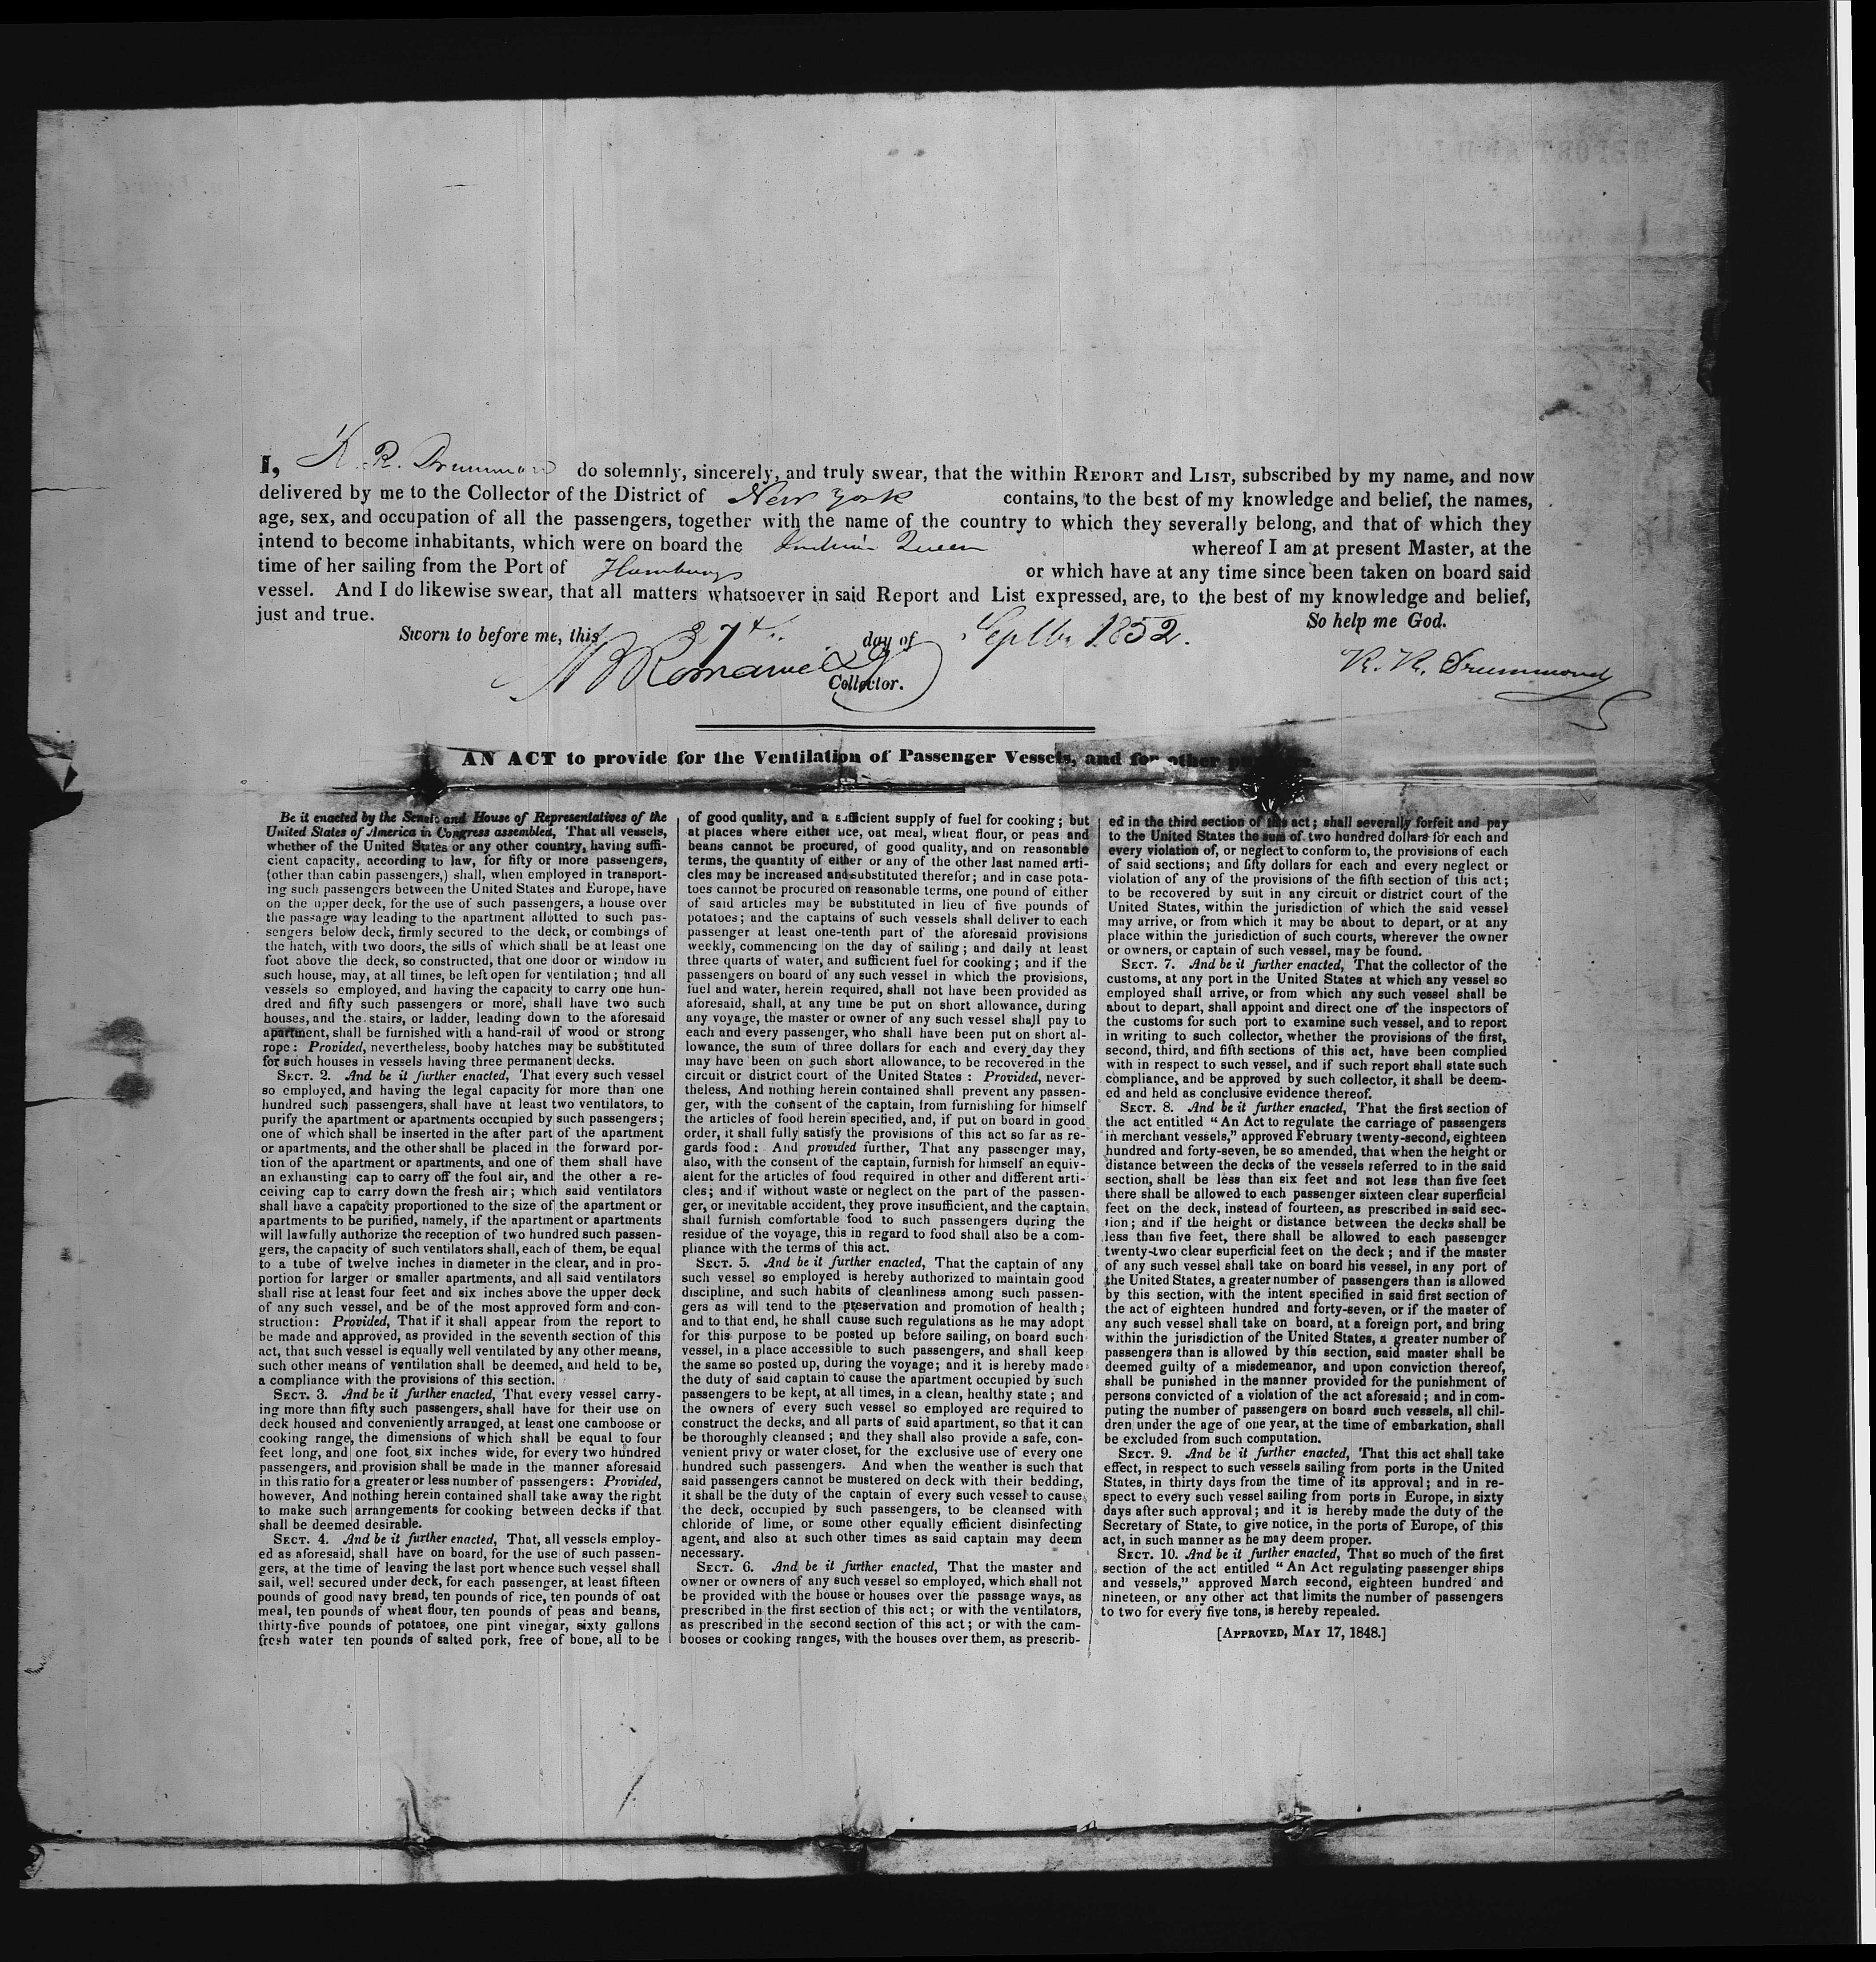 I, K. R. Drummond do solemnly, sincerely, and truly swear, that the within REPORT and LIST, subscribed by my name, and now
delivered by me to the Collector of the District of New York contains, to the best of my knowledge and belief, the names,
age, sex, and occupation of all the passengers, together with the name of the country to which they severally belong, and that of which they
intend to become inhabitants, which were on board the Indian Queen whereof I am at present Master, at the
time of her sailing from the Port of Hamburg or which have at any time since been taken on board said
vessel. And I do likewise swear, that all matters whatsoever in said Report and List expressed, are, to the best of my knowledge and belief,
just and true. So help me God.
Sworn to before me, this 27th day of Septbr 1852.
Drummond
Collector.
AN ACT to provide for the Ventilation of Passenger Vessels, and for other
Be it enacted by the Senate and House of Representatives of the
United States of America in Congress assembled, That all vessels,
whether of the United States or any other country, having suffi-
cient capacity, according to law, for fifty or more passengers,
(other than cabin passengers,) shall, when employed in transport-
ing such passengers between the United States and Europe, have
on the upper deck, for the use of such passengers, a house over
the passage way leading to the apartment allotted to such pas-
sengers below deck, firmly secured to the deck, or combings of
the hatch, with two doors, the sills of which shall be at least one
foot above the deck, so constructed, that one door or window in
such house, may, at all times, be left open for ventilation; and all
vessels so employed, and having the capacity to carry one hun-
dred and fifty such passengers or more, shall have two such
houses, and the stairs, or ladder, leading down to the aforesaid
apartment, shall be furnished with a hand-rail of wood or strong
rope: Provided, nevertheless, booby hatches may be substituted
for such houses in vessels having three permanent decks.
SECT. 2. And be it further enacted, That every such vessel
so employed, and having the legal capacity for more than one
hundred such passengers, shall have at least two ventilators, to
purify the apartment or apartments occupied by such passengers;
one of which shall be inserted in the after part of the apartment
or apartments, and the other shall be placed in the forward por-
tion of the apartment or apartments, and one of them shall have
an exhausting cap to carry off the foul air, and the other a re-
ceiving cap to carry down the fresh air; which said ventilators
shall have a capacity proportioned to the size of the apartment or
apartments to be purified, namely, if the apartment or apartments
will lawfully authorize the reception of two hundred such passen-
gers, the capacity of such ventilators shall, each of them, be equal
to a tube of twelve inches in diameter in the clear, and in pro-
portion for larger or smaller apartments, and all said ventilators
shall rise at least four feet and six inches above the upper deck
of any such vessel, and be of the most approved form and con-
struction: Provided, That if it shall appear from the report to
be made and approved, as provided in the seventh section of this
act, that such vessel is equally well ventilated by any other means,
such other means of ventilation shall be deemed, and held to be,
a compliance with the provisions of this section.
SECT. 3. And be it further enacted, That every vessel carry-
ing more than fifty such passengers, shall have for their use on
deck housed and conveniently arranged, at least one camboose or
cooking range, the dimensions of which shall be equal to four
feet long, and one foot six inches wide, for every two hundred
passengers, and provision shall be made in the manner aforesaid
in this ratio for a greater or less number of passengers: Provided,
however, And nothing herein contained shall take away the right
to make such arrangements for cooking between decks if that
shall be deemed desirable.
SECT. 4. And be it further enacted, That, all vessels employ-
ed as aforesaid, shall have on board, for the use of such passen-
gers, at the time of leaving the last port whence such vessel shall
sail, well secured under deck, for each passenger, at least fifteen
pounds of good navy bread, ten pounds of rice, ten pounds of oat
meal, ten pounds of wheat flour, ten pounds of peas and beans,
thirty-five pounds of potatoes, one pint vinegar, sixty gallons
fresh water ten pounds of salted pork, free of bone, all to be
of good quality, and a sufficient supply of fuel for cooking; but
at places where either rice, oat meal, wheat flour, or peas and
beans cannot be procured, of good quality, and on reasonable
terms, the quantity of either or any of the other last named arti-
cles may be increased and substituted therefor; and in case pota-
toes cannot be procured on reasonable terms, one pound of either
of said articles may be substituted in lieu of five pounds of
potatoes; and the captains of such vessels shall deliver to each
passenger at least one-tenth part of the aforesaid provisions
weekly, commencing on the day of sailing; and daily at least
three quarts of water, and sufficient fuel for cooking; and if the
passengers on board of any such vessel in which the provisions,
fuel and water, herein required, shall not have been provided as
aforesaid, shall, at any time be put on short allowance, during
any voyage, the master or owner of any such vessel shall pay to
each and every passenger, who shall have been put on short al-
lowance, the sum of three dollars for each and every day they
may have been on such short allowance, to be recovered in the
circuit or district court of the United States: Provided, never-
theless, And nothing herein contained shall prevent any passen-
ger, with the consent of the captain, from furnishing for himself
the articles of food herein specified, and, if put on board in good
order, it shall fully satisfy the provisions of this act so far as re-
gards food: And provided further, That any passenger may,
also, with the consent of the captain, furnish for himself an equiv-
alent for the articles of food required in other and different arti-
cles; and if without waste or neglect on the part of the passen-
ger, or inevitable accident, they prove insufficient, and the captain
shall furnish comfortable food to such passengers during the
residue of the voyage, this in regard to food shall also be a com-
pliance with the terms of this act.
SECT. 5. And be it further enacted, That the captain of any
such vessel so employed is hereby authorized to maintain good
discipline, and such habits of cleanliness among such passen-
gers as will tend to the preservation and promotion of health;
and to that end, he shall cause such regulations as he may adopt
for this purpose to be posted up before sailing, on board such
vessel, in a place accessible to such passengers, and shall keep
the same so posted up, during the voyage; and it is hereby made
the duty of said captain to cause the apartment occupied by such
passengers to be kept, at all times, in a clean, healthy state; and
the owners of every such vessel so employed are required to
construct the decks, and all parts of said apartment, so that it can
be thoroughly cleansed; and they shall also provide a safe, con-
venient privy or water closet, for the exclusive use of every one
hundred such passengers. And when the weather is such that
said passengers cannot be mustered on deck with their bedding,
it shall be the duty of the captain of every such vessel to cause
the deck, occupied by such passengers, to be cleansed with
chloride of lime, or some other equally efficient disinfecting
agent, and also at such other times as said captain may deem
necessary.
SECT. 6. And be it further enacted, That the master and
owner or owners of any such vessel so employed, which shall not
be provided with the house or houses over the passage ways, as
prescribed in the first section of this act; or with the ventilators,
as prescribed in the second section of this act; or with the cam-
booses or cooking ranges, with the houses over them, as prescrib-
ed in the third section of this act; shall severally forfeit and pay
to the United States the sum of two hundred dollars for each and
every violation of, or neglect to conform to, the provisions of each
of said sections; and fifty dollars for each and every neglect or
violation of any of the provisions of the fifth section of this act;
to be recovered by suit in any circuit or district court of the
United States, within the jurisdiction of which the said vessel
may arrive, or from which it may be about to depart, or at any
place within the jurisdiction of such courts, wherever the owner
or owners, or captain of such vessel, may be found.
SECT. 7. And be it further enacted, That the collector of the
customs, at any port in the United States at which any vessel so
employed shall arrive, or from which any such vessel shall be
about to depart, shall appoint and direct one of the inspectors of
the customs for such port to examine such vessel, and to report
in writing to such collector, whether the provisions of the first,
second, third, and fifth sections of this act, have been complied
with in respect to such vessel, and if such report shall state such
compliance, and be approved by such collector, it shall be deem-
ed and held as conclusive evidence thereof.
SECT. 8. And be it further enacted, That the first section of
the act entitled "An Act to regulate the carriage of passengers
in merchant vessels," approved February twenty-second, eighteen
hundred and forty-seven, be so amended, that when the height or
distance between the decks of the vessels referred to in the said
section, shall be less than six feet and not less than five feet
there shall be allowed to each passenger sixteen clear superficial
feet on the deck, instead of fourteen, as prescribed in said sec-
tion; and if the height or distance between the decks shall be
less than five feet, there shall be allowed to each passenger
twenty-two clear superficial feet on the deck; and if the master
of any such vessel shall take on board his vessel, in any port of
the United States, a greater number of passengers than is allowed
by this section, with the intent specified in said first section of
the act of eighteen hundred and forty-seven, or if the master of
any such vessel shall take on board, at a foreign port, and bring
within the jurisdiction of the United States, a greater number of
passengers than is allowed by this section, said master shall be
deemed guilty of a misdemeanor, and upon conviction thereof,
shall be punished in the manner provided for the punishment of
persons convicted of a violation of the act aforesaid; and in com-
puting the number of passengers on board such vessels, all chil-
dren under the age of one year, at the time of embarkation, shall
be excluded from such computation.
SECT. 9. And be it further enacted, That this act shall take
effect, in respect to such vessels sailing from ports in the United
States, in thirty days from the time of its approval; and in re-
spect to every such vessel sailing from ports in Europe, in sixty
days after such approval; and it is hereby made the duty of the
Secretary of State, to give notice, in the ports of Europe, of this
act, in such manner as he may deem proper.
SECT. 10. And be it further enacted, That so much of the first
section of the act entitled "An Act regulating passenger ships
and vessels," approved March second, eighteen hundred and
nineteen, or any other act that limits the number of passengers
to two for every five tons, is hereby repealed.
[APPROVED, MAY 17, 1848.]